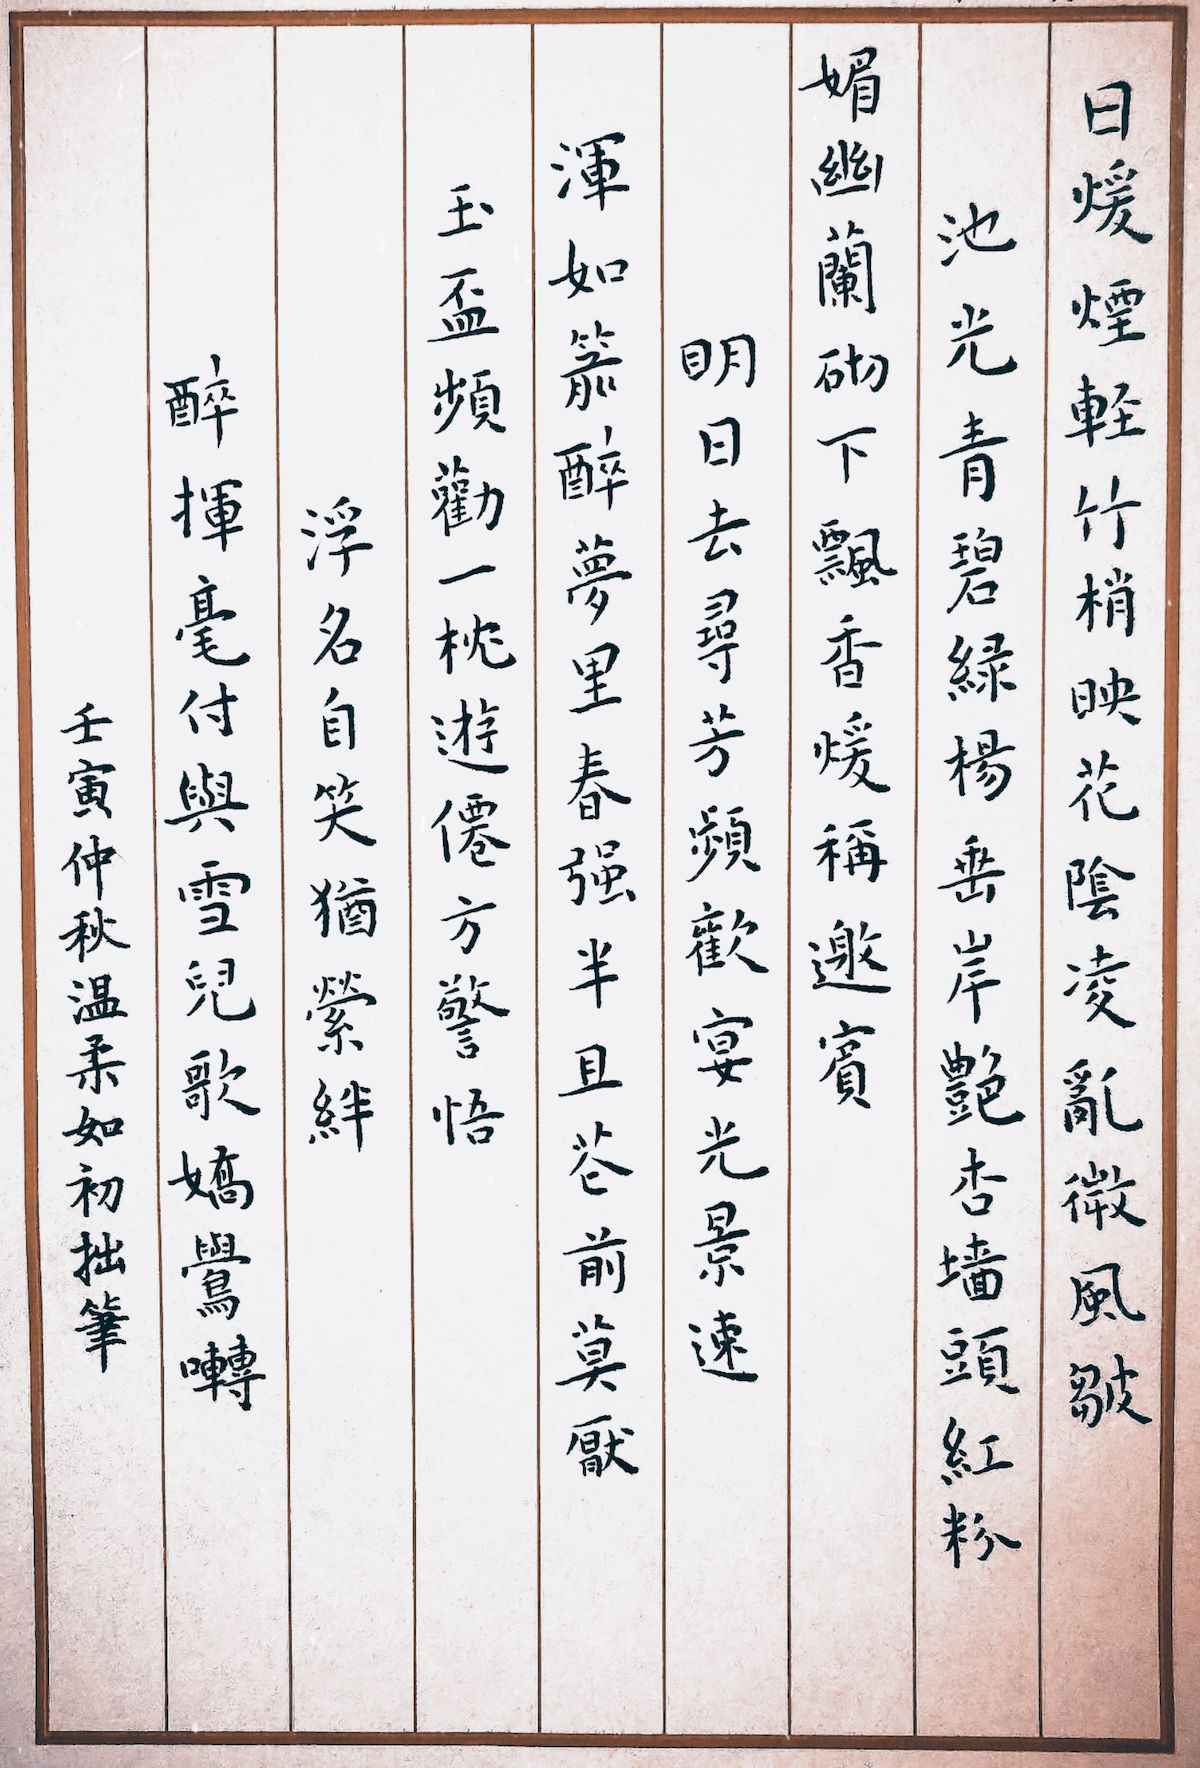 日煖煙軽竹梢映花陰凌亂微風皺
池光青碧緑楊垂岸艶杏墻頭紅粉
媚幽蘭砌下飄香煖稱邀賓
明日去尋芳頻歡宴光景速
渾如箭醉夢里春强半且花前莫厭
玉盃頻勸一枕遊僊方警悟
浮名自笑猶縈絆
醉揮毫付與雪兒歌嬌鶯囀
壬寅仲秋温柔如初拙筆